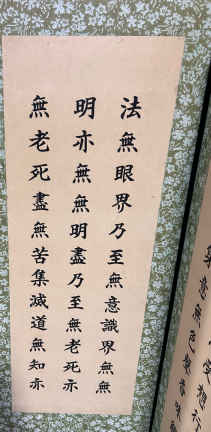 受想行
意無色聲香味
法無眼界乃至無意識界無無
明亦無無明盡乃至無老死亦
無老死盡無苦集滅道無知亦